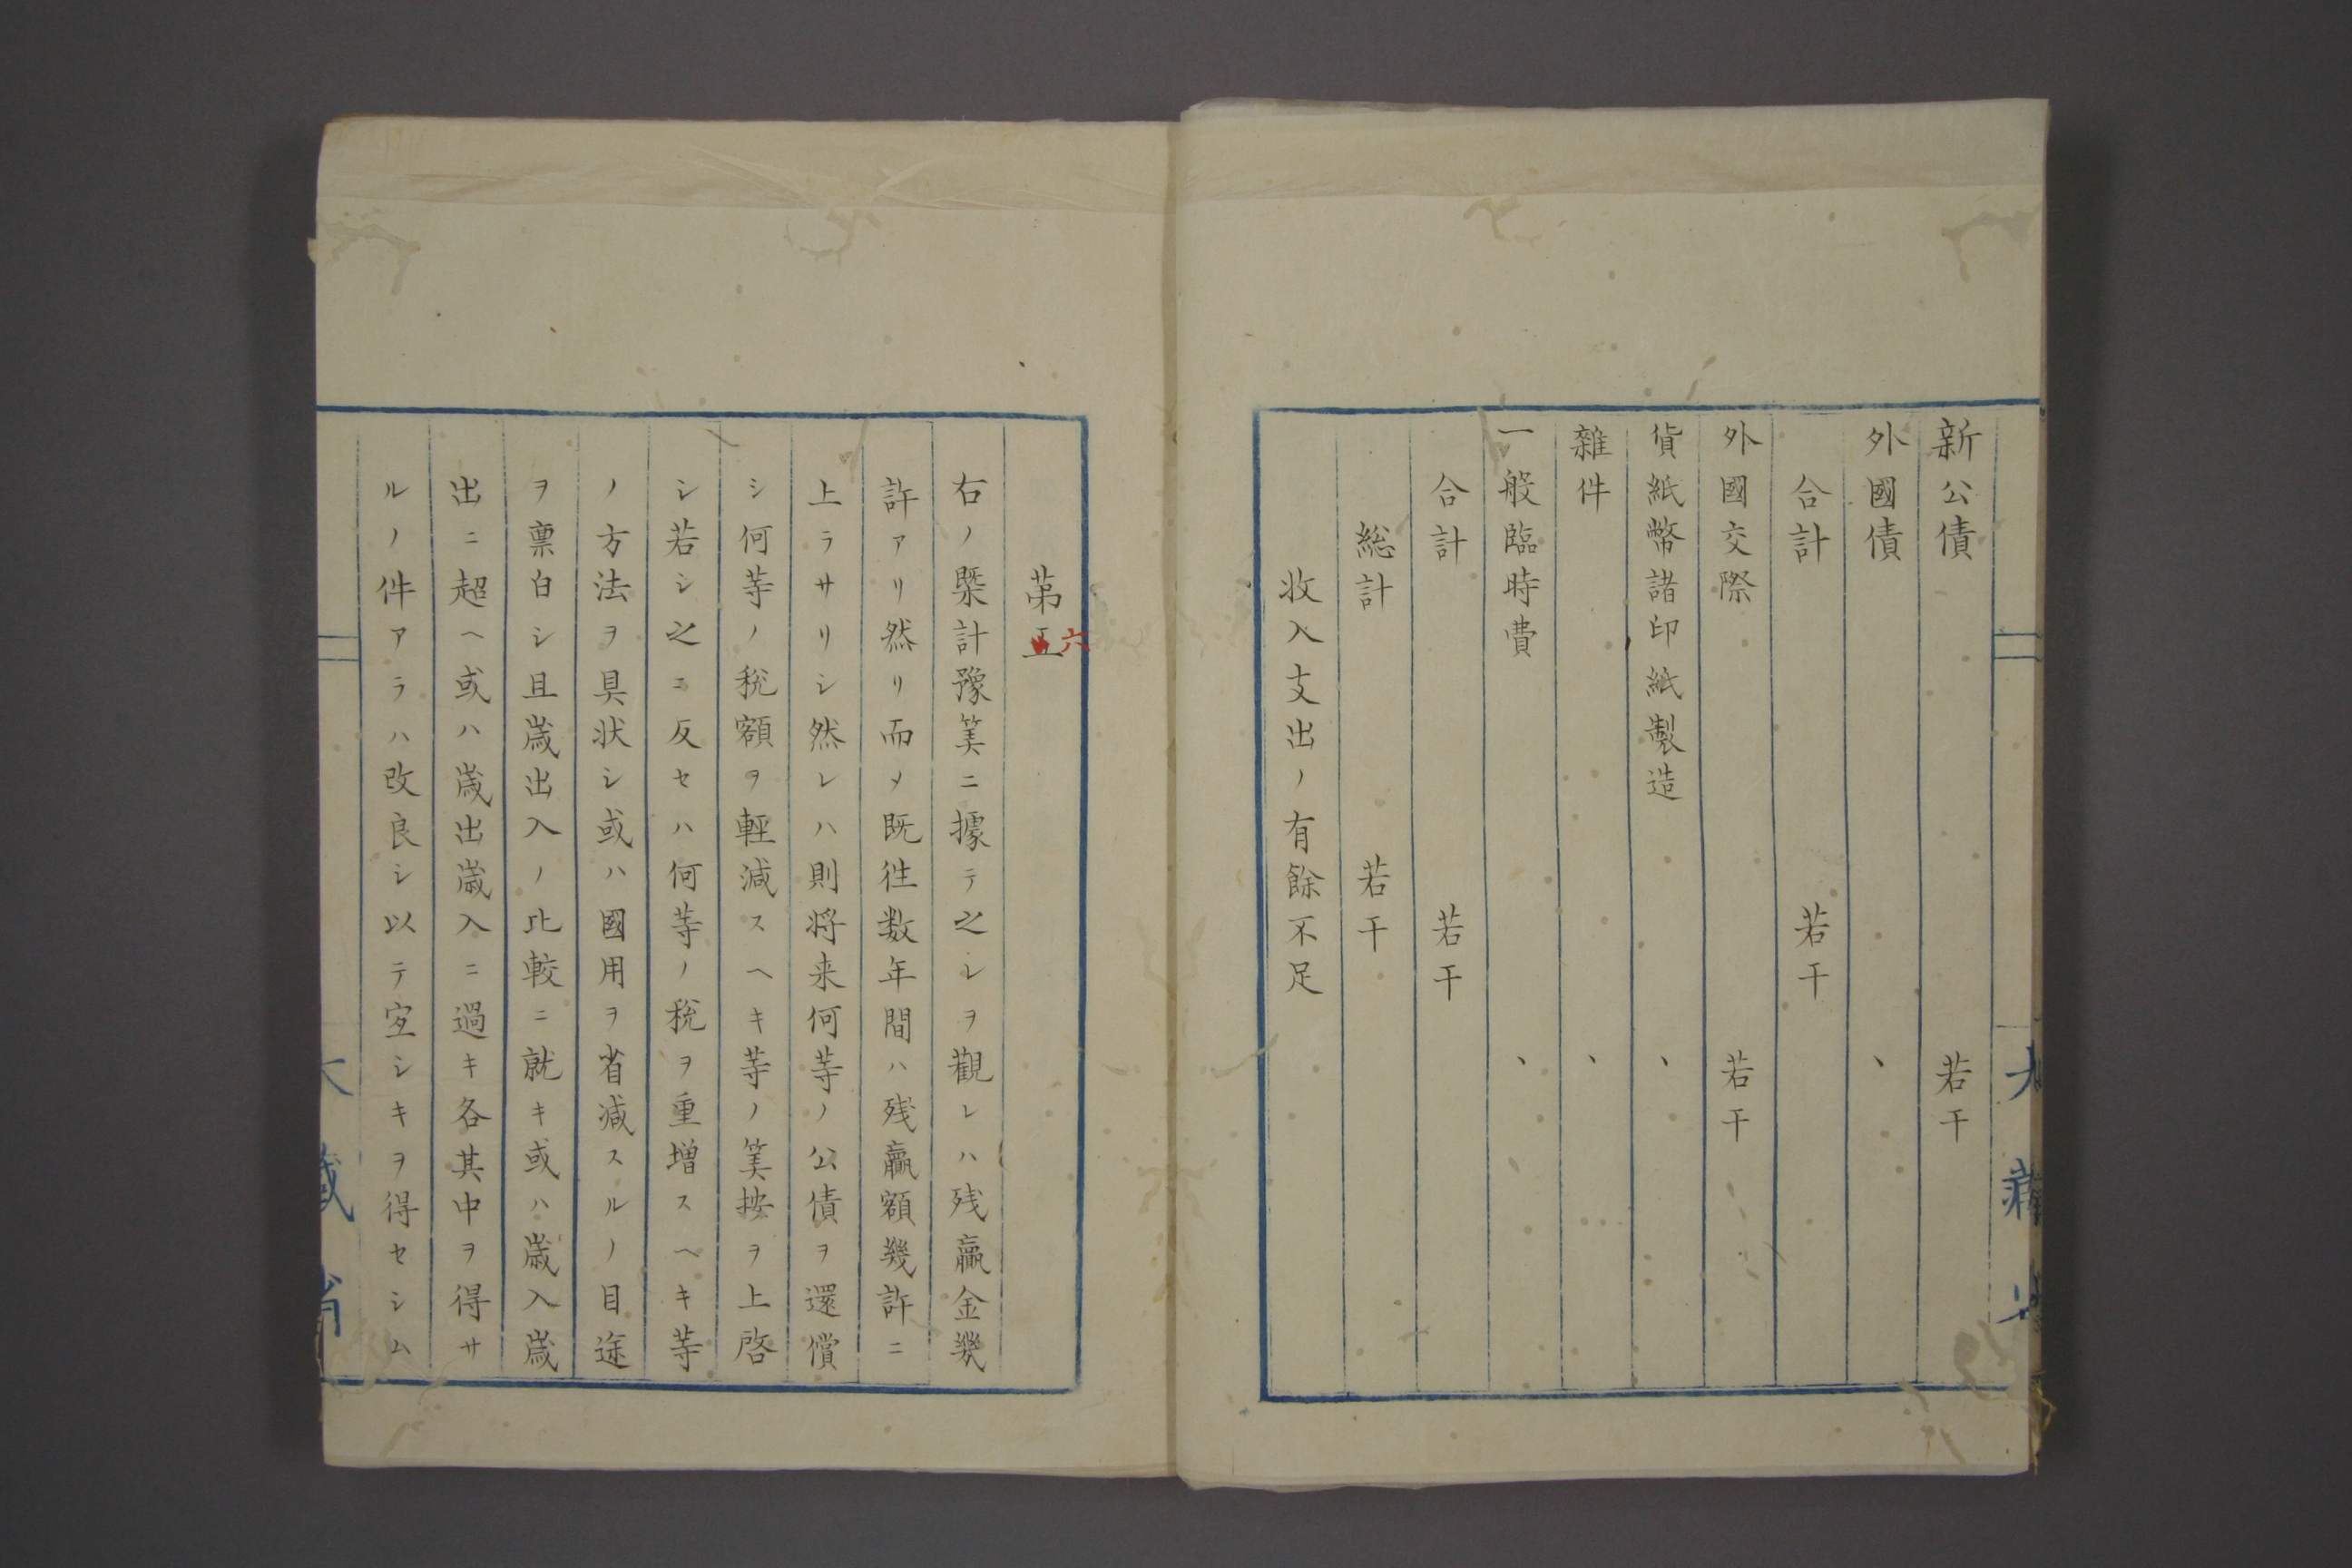 新公債　若干
外國債　、
合計　若干
外國交際　若干
貨紙幣諸印紙製造　、
雜件　、
一般臨時費　、
合計　若干
総計　若干
收入支出ノ有餘不足
大藏省
第五六
右ノ槩計豫筭ニ據テ之レヲ觀レハ残贏金幾
許アリ然リ而〆既徃数年間ハ残贏額幾許ニ
上ラサリシ然レハ則将来何等ノ公債ヲ還償
シ何等ノ税額ヲ輕減スヘキ等ノ筭按ヲ上啓
シ若シ之ニ反セハ何等ノ税ヲ重増スヘキ等
ノ方法ヲ具状シ或ハ國用ヲ省减スルノ目途
ヲ禀白シ且歳出入ノ比較ニ就キ或ハ歳入歳
出ニ超ヘ或ハ歳出歳入ニ過キ各其中ヲ得サ
ルノ件アラハ改良シ以テ宜シキヲ得セシム
大藏省